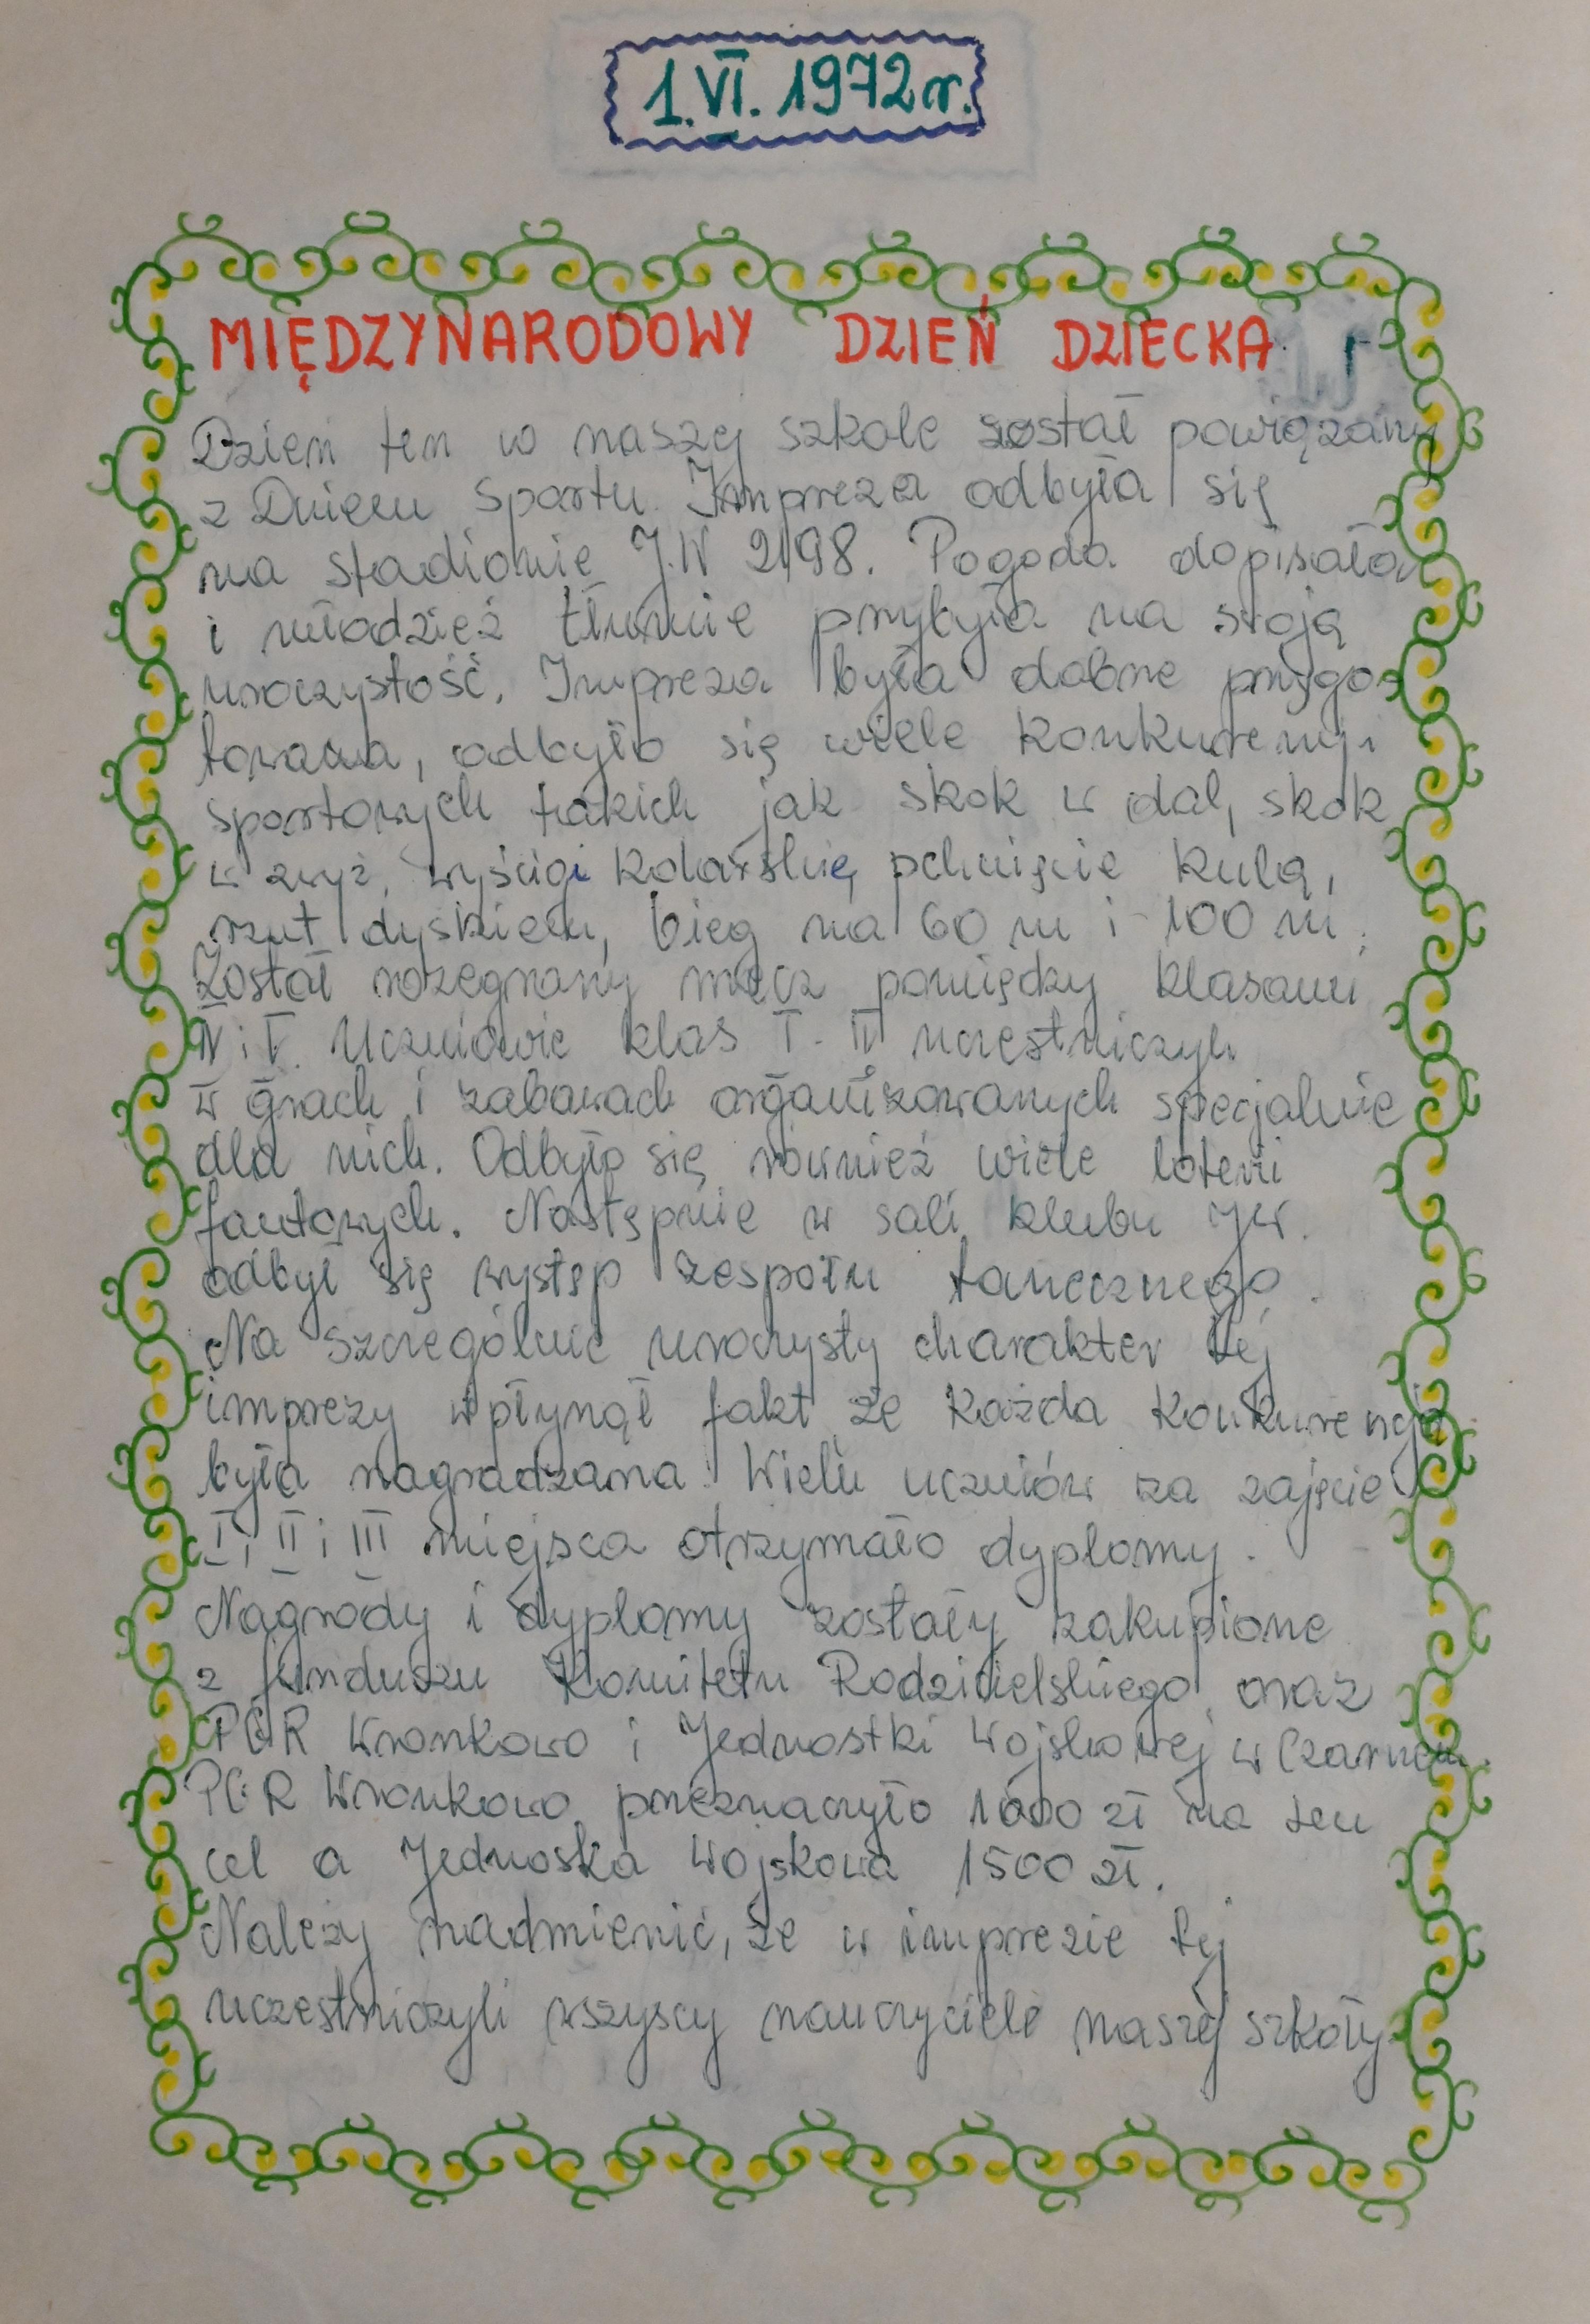 1. VI. 1972 r.
MIĘDZYNARODOWY DZIEŃ DZIECKA
Dzień ten w naszej szkole został powiązany
z Dniem Sportu. Impreza odbyła się
na stadionie J.W 2198. Pogoda dopisała
i młodzież tłumnie przybyła na swoją
uroczystość. Impreza była dobrze przygo-
towana, odbyło się wiele konkurencji
sportowych takich jak skok w dal, skok
w zwyż, wyścigi kolarskie, pchnięcie kulą,
rzut dyskiem, bieg na 60 m i 100 m.
Został rozegrany mecz pomiędzy klasami
IV i V. Uczniowie klas I - III uczęstniczyli
w grach i zabawach organizowanych specjalnie
dla nich. Odbyło się również wiele loterii
fantowych. Następnie w sali klubu JW.
odbył się występ zespołu tanecznego.
Na szczególnie uroczysty charakter tej
imprezy wpłynął fakt że każda konkurencja
była nagradzana. Wielu uczniów za zajęcie
I, II i III miejsca otrzymało dyplomy.
Nagrody i dyplomy zostały zakupione
z funduszu Komitetu Rodzicielskiego oraz
PGR Wronkowo i Jednostki Wojskowej w Czarnem.
PGR Wronkowo przeznaczyło 1000 zł na ten
cel a Jednoska Wojskowa 1500 zł.
Należy nadmienić, że w imprezie tej
uczęstniczyli wszyscy nauczyciele naszej szkoły.